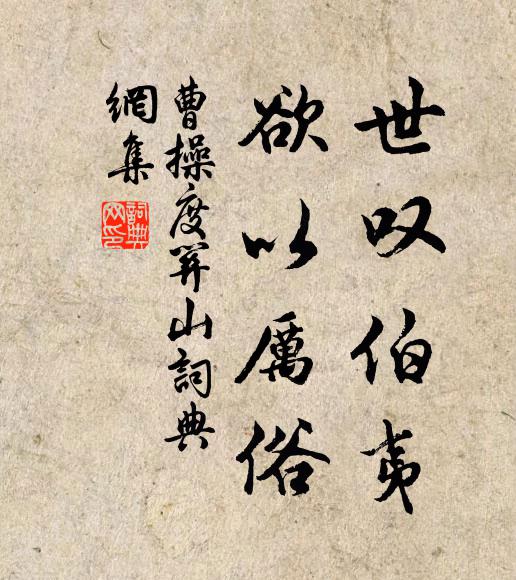 世叹伯夷
欲以厲俗
曹操度関山詞典
網集
詞典
网印